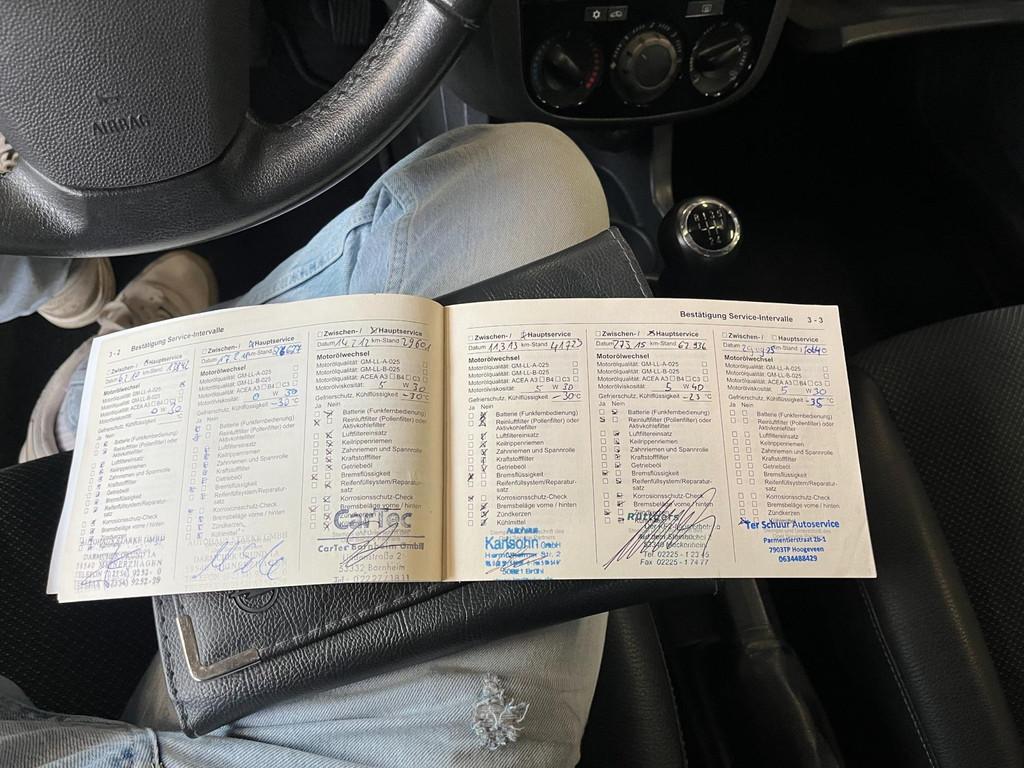 AIRBAG
3 - 2 Bestätigung Service-Intervalle
Zwischen- / Hauptservice
Datum km-Stand
Motorölwechsel
Motorölqualität: GM-LL-A-025
Motorölqualität: GM-LL-B-025
Motorölqualität: ACEA A3 B4 C3
Motorölviskosität: 0 W 30
Gefrierschutz, Kühlflüssigkeit
Ja Nein
Batterie (Funkfernbedienung)
Reinluftfilter (Pollenfilter) oder
Aktivkohlefilter
Luftfiltereinsatz
Keilrippenriemen
Zahnriemen und Spannrolle
Kraftstofffilter
Getriebeöl
Bremsflüssigkeit
Reifenfüllsystem/Reparatur-
satz
Korrosionsschutz-Check
Bremsbeläge vorne / hinten
Zündkerzen
Zwischen- / Hauptservice
Datum km-Stand
Motorölwechsel
Motorölqualität: GM-LL-A-025
Motorölqualität: GM-LL-B-025
Motorölqualität: ACEA A3 B4 C3
Motorölviskosität: 0 W 30
Gefrierschutz, Kühlflüssigkeit -30 °C
Ja Nein
Batterie (Funkfernbedienung)
Reinluftfilter (Pollenfilter) oder
Aktivkohlefilter
Luftfiltereinsatz
Keilrippenriemen
Zahnriemen und Spannrolle
Kraftstofffilter
Getriebeöl
Bremsflüssigkeit
Reifenfüllsystem/Reparatur-
satz
Korrosionsschutz-Check
Bremsbeläge vorne / hinten
Zündkerzen
Zwischen- / Hauptservice
Datum 14.2.12 km-Stand 29601
Motorölwechsel
Motorölqualität: GM-LL-A-025
Motorölqualität: GM-LL-B-025
Motorölqualität: ACEA A3 B4 C3
Motorölviskosität: 5 W 30
Gefrierschutz, Kühlflüssigkeit -30 °C
Ja Nein
Batterie (Funkfernbedienung)
Reinluftfilter (Pollenfilter) oder
Aktivkohlefilter
Luftfiltereinsatz
Keilrippenriemen
Zahnriemen und Spannrolle
Kraftstofffilter
Getriebeöl
Bremsflüssigkeit
Reifenfüllsystem/Reparatur-
satz
Korrosionsschutz-Check
Bremsbeläge vorne / hinten
CarTec
CarTec Bornheim GmbH
53332 Bornheim
Bestätigung Service-Intervalle 3 - 3
Zwischen- / Hauptservice
Datum 11.3.13 km-Stand 41723
Motorölwechsel
Motorölqualität: GM-LL-A-025
Motorölqualität: GM-LL-B-025
Motorölqualität: ACEA A3 B4 C3
Motorölviskosität: 5 W 30
Gefrierschutz, Kühlflüssigkeit -30 °C
Ja Nein
Batterie (Funkfernbedienung)
Reinluftfilter (Pollenfilter) oder
Aktivkohlefilter
Luftfiltereinsatz
Keilrippenriemen
Zahnriemen und Spannrolle
Kraftstofffilter
Getriebeöl
Bremsflüssigkeit
Reifenfüllsystem/Reparatur-
satz
Korrosionsschutz-Check
Bremsbeläge vorne / hinten
Zündkerzen
Kühlmittel
Autohaus
Karlsohn GmbH
Zwischen- / Hauptservice
Datum 27.3.15 km-Stand 67.936
Motorölwechsel
Motorölqualität: GM-LL-A-025
Motorölqualität: GM-LL-B-025
Motorölqualität: ACEA A3 B4 C3
Motorölviskosität: 5 W 40
Gefrierschutz, Kühlflüssigkeit -23 °C
Ja Nein
Batterie (Funkfernbedienung)
Reinluftfilter (Pollenfilter) oder
Aktivkohlefilter
Luftfiltereinsatz
Keilrippenriemen
Zahnriemen und Spannrolle
Kraftstofffilter
Getriebeöl
Bremsflüssigkeit
Reifenfüllsystem/Reparatur-
satz
Korrosionsschutz-Check
Bremsbeläge vorne / hinten
Rüttgers
Tel. 02225 - 1 23 45
Fax 02225 - 1 74 77
Zwischen- / Hauptservice
Datum km-Stand
Motorölwechsel
Motorölqualität: GM-LL-A-025
Motorölqualität: GM-LL-B-025
Motorölqualität: ACEA A3 B4 C3
Motorölviskosität: 5 W 30
Gefrierschutz, Kühlflüssigkeit -35 °C
Ja Nein
Batterie (Funkfernbedienung)
Reinluftfilter (Pollenfilter) oder
Aktivkohlefilter
Luftfiltereinsatz
Keilrippenriemen
Zahnriemen und Spannrolle
Kraftstofffilter
Getriebeöl
Bremsflüssigkeit
Reifenfüllsystem/Reparatur-
satz
Korrosionsschutz-Check
Bremsbeläge vorne / hinten
Ter Schuur Autoservice
Parmentierstraat 2b-1
7903TP Hoogeveen
0634488429